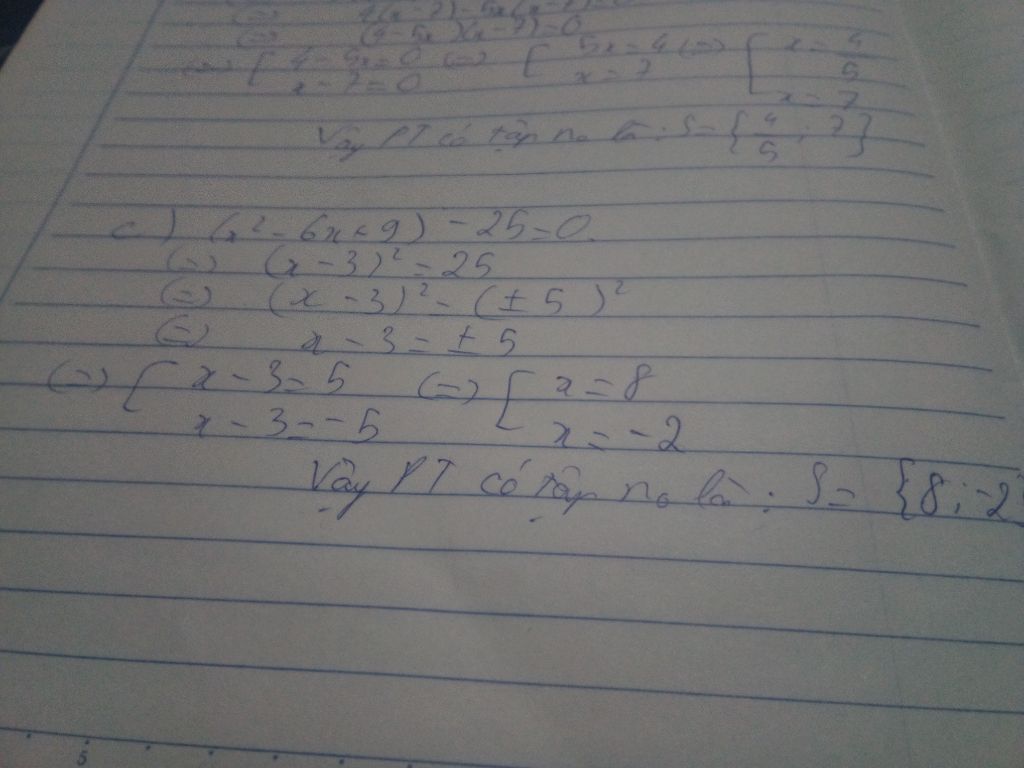 (=) (4-5x)(x-7)=0
(=) [ 4-5x=0 (=) [ 5x=4 (=) [ x=4/5
x-7=0 x=7 x=7
Vậy PT có tập no là: S={4/5; 7}
c) (x²-6x+9)-25=0
(=) (x-3)²=25
(=) (x-3)²=(±5)²
(=) x-3=±5
(=) [ x-3=5 (=) [ x=8
x-3=-5 x=-2
Vậy PT có tập no là: S={8;-2}
5